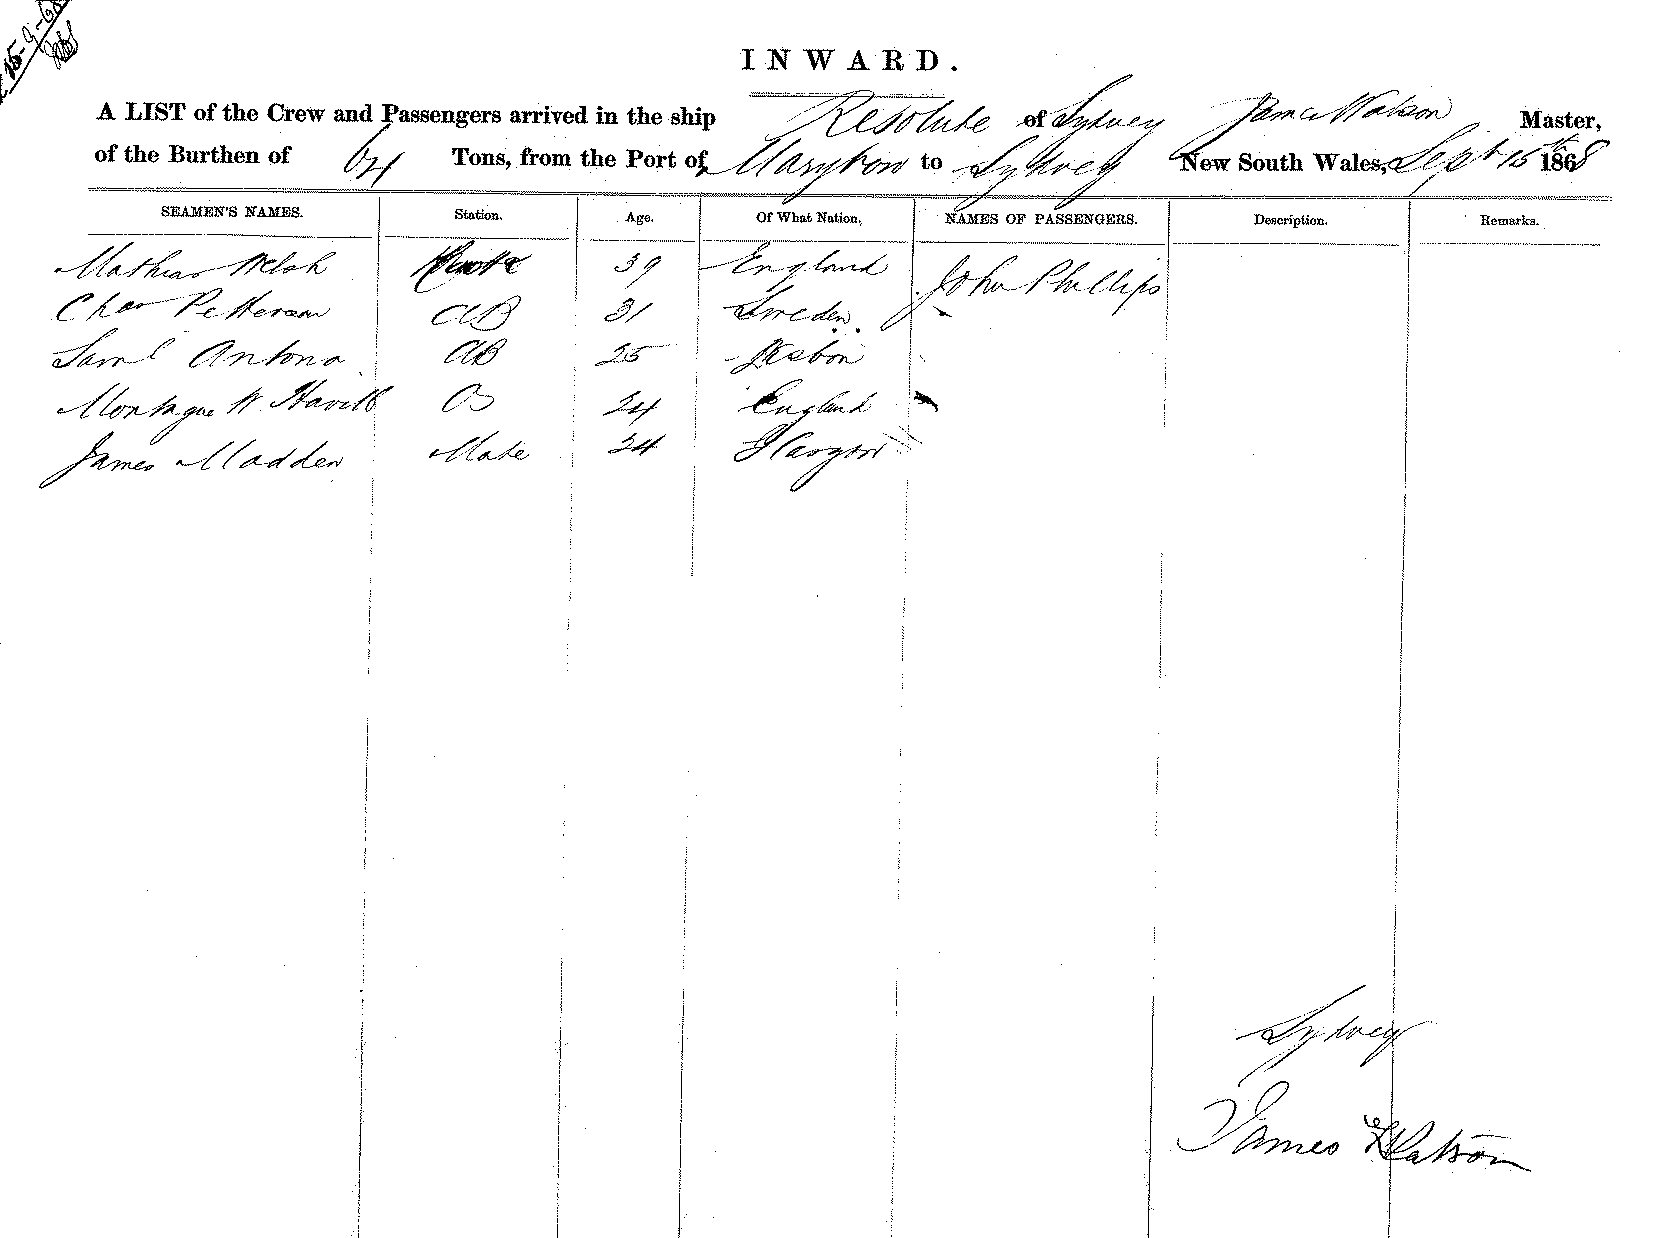 15-9-68
INWARD.
A LIST of the Crew and Passengers arrived in the ship Resolute of Sydney James Watson Master,
of the Burthen of 64 Tons, from the Port of Maryboro to Sydney New South Wales, Sept 15th 1868
SEAMEN'S NAMES. Station. Age. Of What Nation, NAMES OF PASSENGERS. Description. Remarks.
Mathias Welsh 39 England John Phillips
Chas Petterson AB 31 Sweden
Saml Antono AB 25 Lisbon
Montague W Havill OS 24 England
James Madden Mate 24 Glasgow
Sydney
James Watson